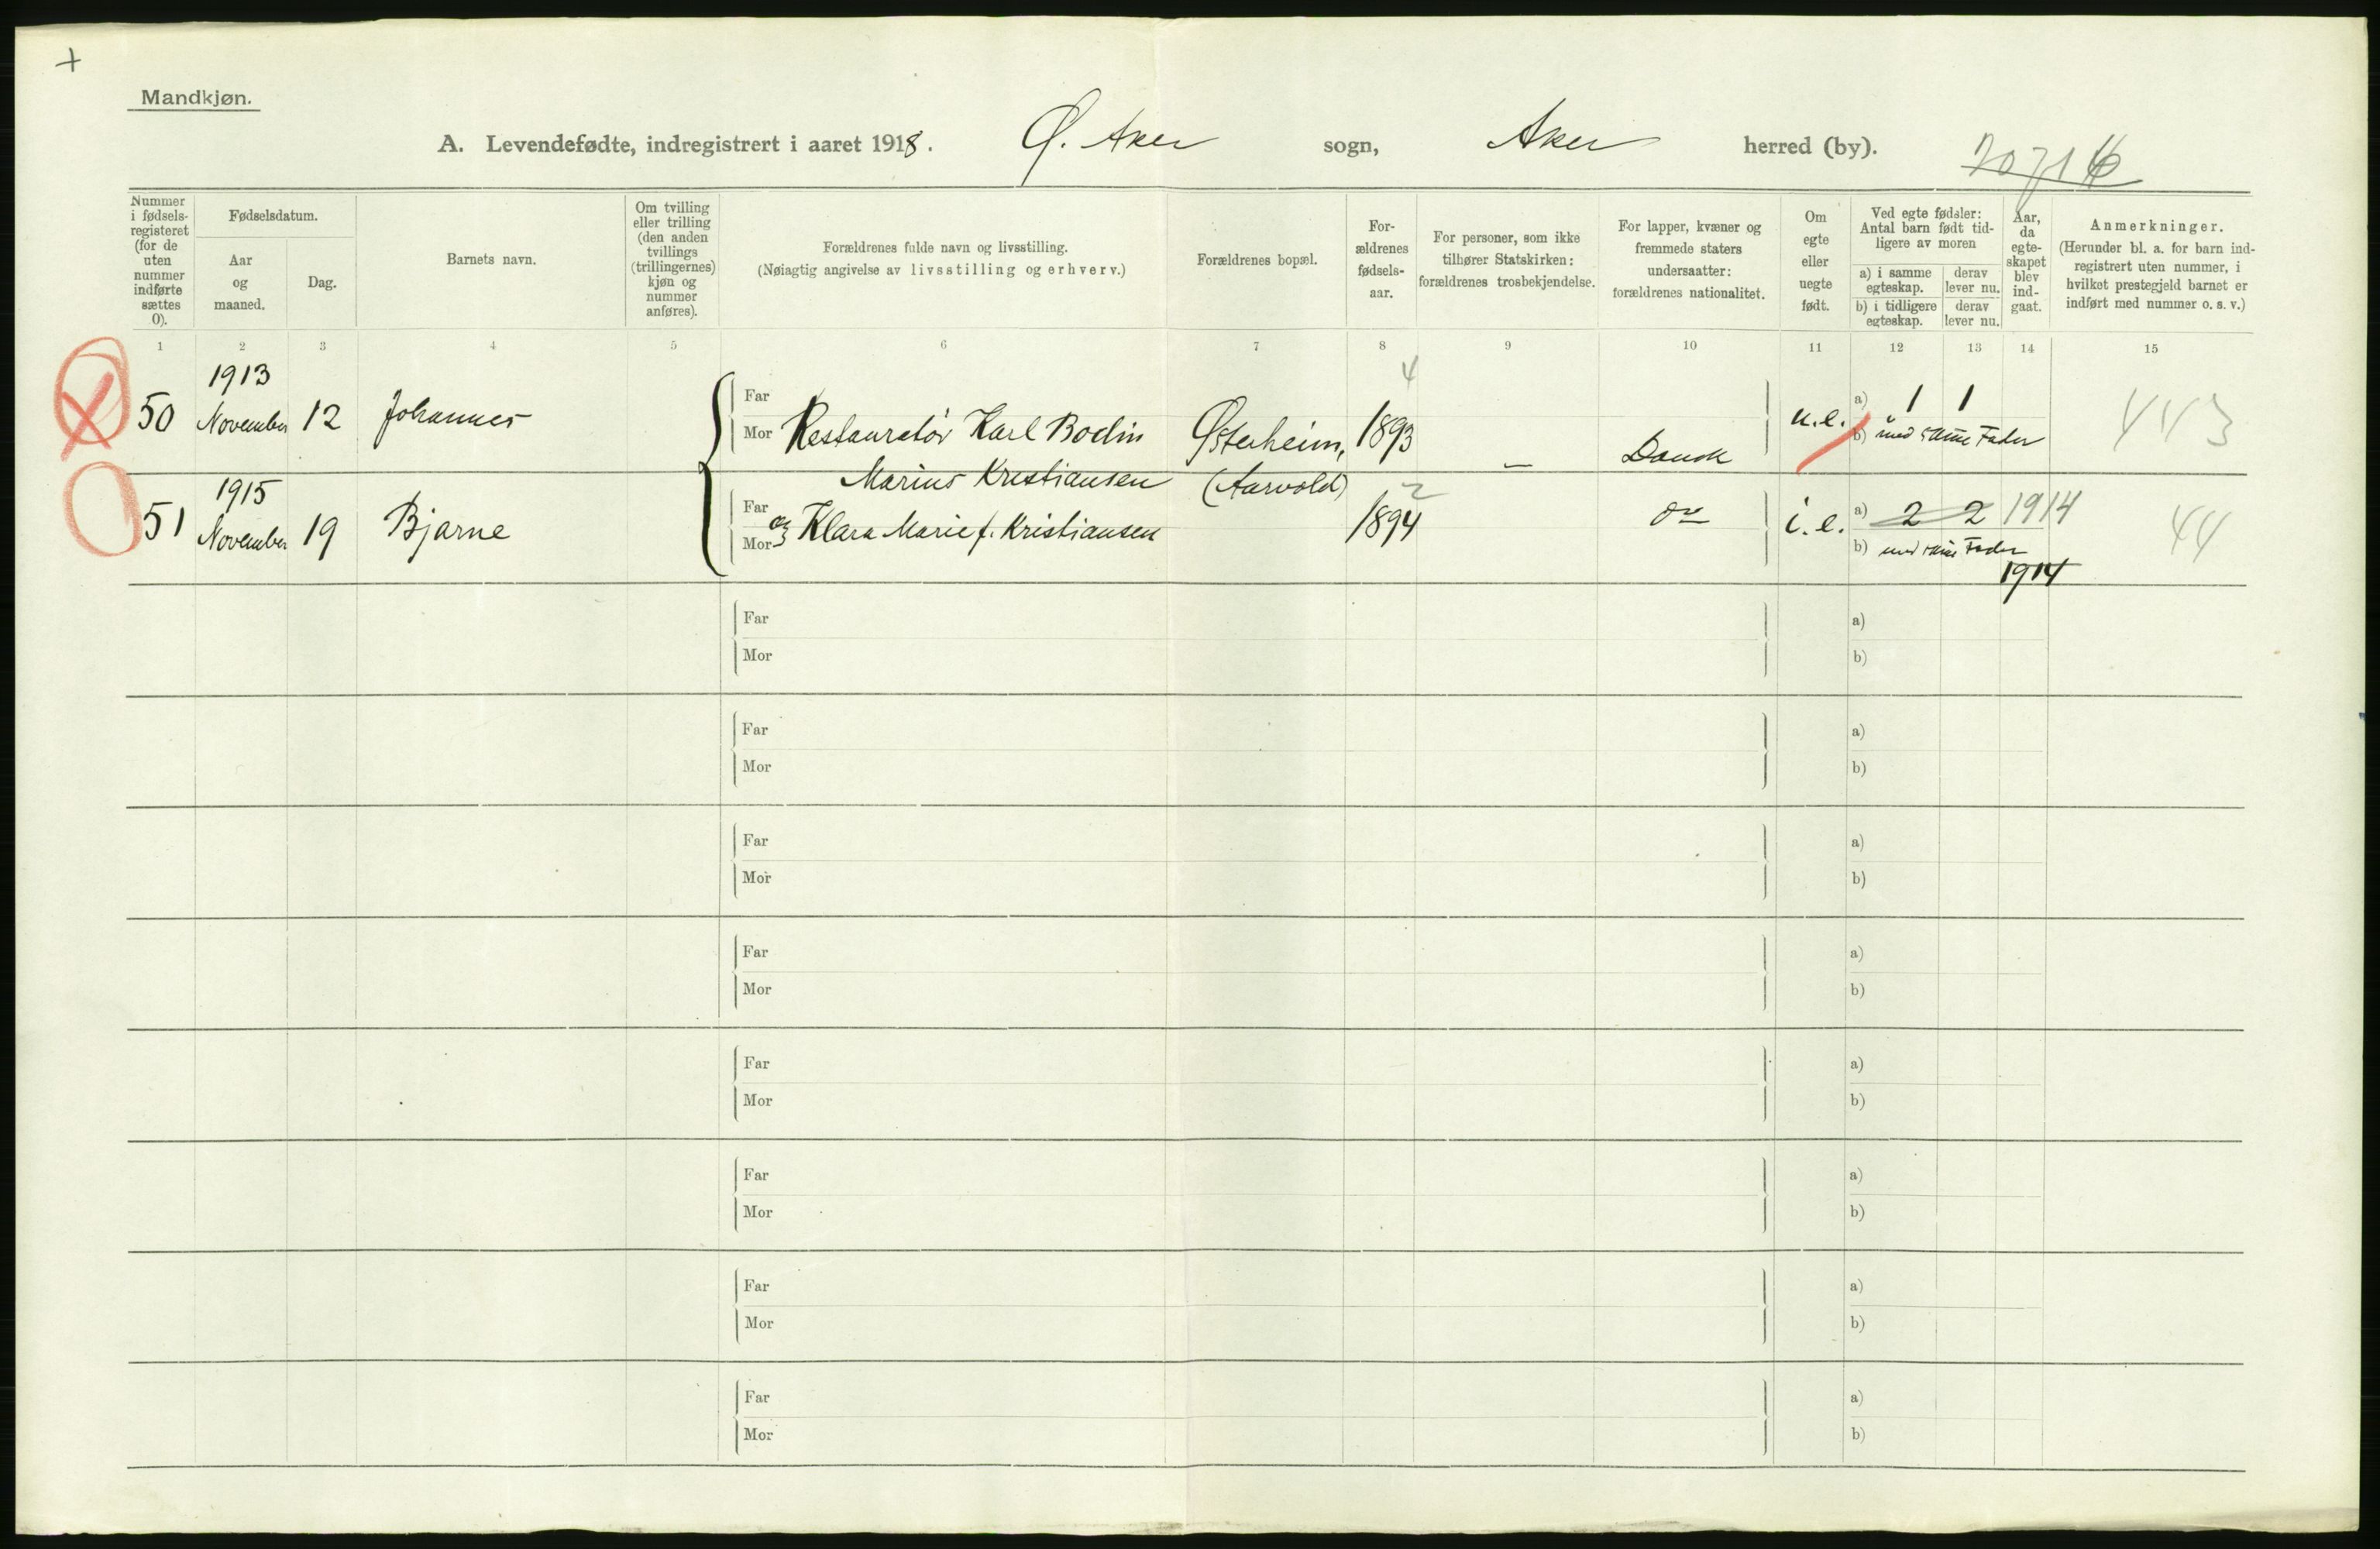 Mandkjøn.
A. Levendefødte, indregistrert i aaret 1918. Ø. Aker sogn, Aker herred (by).
Nummer i fødsels-registeret (for de uten nummer indførte sættes 0).
Fødselsdatum.
Aar og maaned.
Dag.
Barnets navn.
Om tvilling eller trilling (den anden tvillings (trillingernes) kjøn og nummer anføres).
Forældrenes fulde navn og livsstilling.
(Nøiagtig angivelse av livsstilling og erhverv.)
Forældrenes bopæl.
For-ældrenes fødsels-aar.
For personer, som ikke tilhører Statskirken: forældrenes trosbekjendelse.
For lapper, kvæner og fremmede staters undersaatter: forældrenes nationalitet.
Om egte eller uegte født.
Ved egte fødsler: Antal barn født tid-ligere av moren
a) i samme egteskap.
derav lever nu.
b) i tidligere egteskap.
derav lever nu.
Aar, da egte-skapet blev ind-gaat.
Anmerkninger.
(Herunder bl. a. for barn ind-registrert uten nummer, i hvilket prestegjeld barnet er indført med nummer o. s. v.)
1 2 3 4 5 6 7 8 9 10 11 12 13 14 15
1913
4
50 November 12 Johannes
Far
Mor Restauratør Karl Bodin Østerheim, 1893 — Dansk u.e. a) 1 1
b) med samme Fader
443
Marius Kristiansen (Aarvold)
1915
2
51 November 19 Bjarne
Far
Mor og Klara Marie f. Kristiansen 1894 i.e. a) 2 2 1914
b) med samme Fader
1914
44
Far a)
Mor b)
Far a)
Mor b)
Far a)
Mor b)
Far a)
Mor b)
Far a)
Mor b)
Far a)
Mor b)
Far a)
Mor b)
Far a)
Mor b)